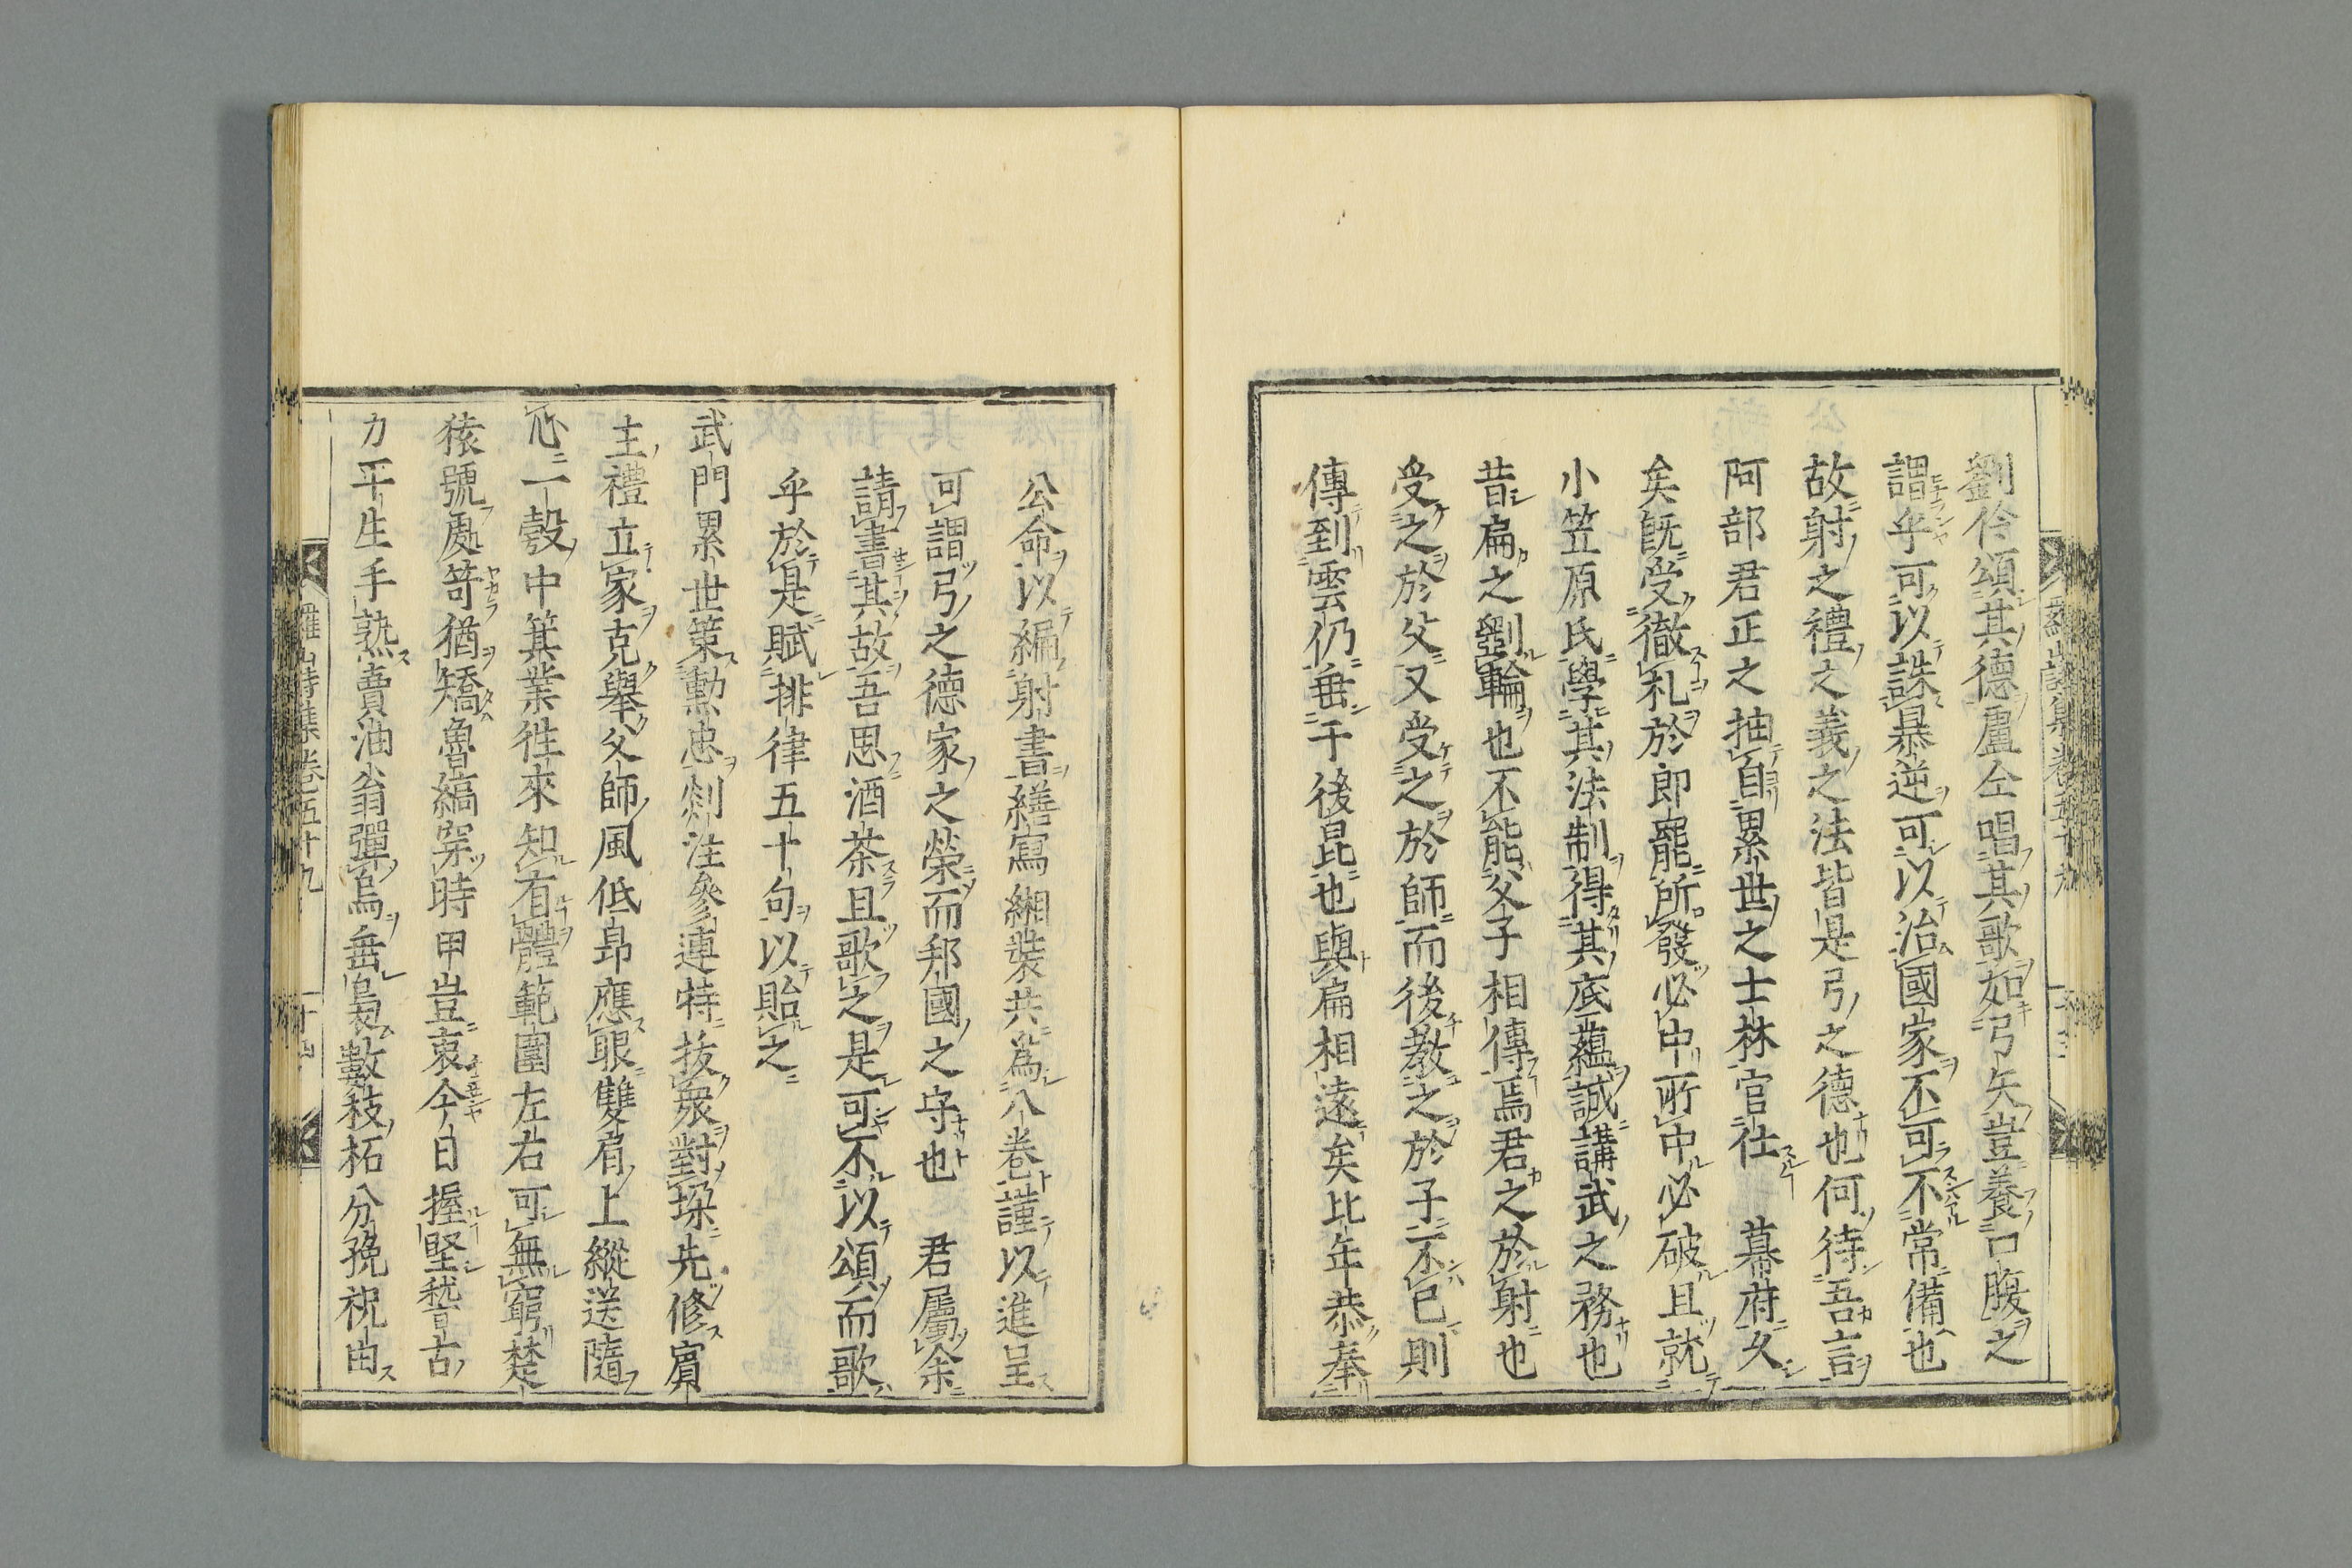 劉伶頌其德盧仝唱其歌如弓矢豈養口腹之
謂乎可以誅暴逆可以治國家不可不常備也
故射之禮之義之法皆是弓之德也何待吾言
阿部君正之抽自累世之士林官仕　幕府久
矣既受徹札於郎罷所發必中所中必破且就
小笠原氏學其法制得其底蘊誠講武之務也
昔扁之劉輪也不能父子相傳焉君之於射也
受之於父又受之於師而後教之於子不已則
傳到雲仍垂于後昆也與扁相遠矣比年恭奉
公命以編射書繕寫緗裝共爲八卷謹以進呈
可謂弓之德家之榮而邦國之守也　君屬余
請書其故吾思酒茶且歌之是可不以頌而歌
乎於是賦排律五十句以貽之
武門累世策勳忠剡注參連特抜衆對垜先修賓
主禮立家克舉父師風低昻應眼雙肩上縱送隨
心一彀中箕業徃來知有體範圍左右可無窮楚
猿號處笴猶矯魯縞穿時甲豈衷今日握堅嵆古
力平生手熟賣油翁彈烏垂梟數枝柘分挽祝由
羅山詩集卷五十九
十四